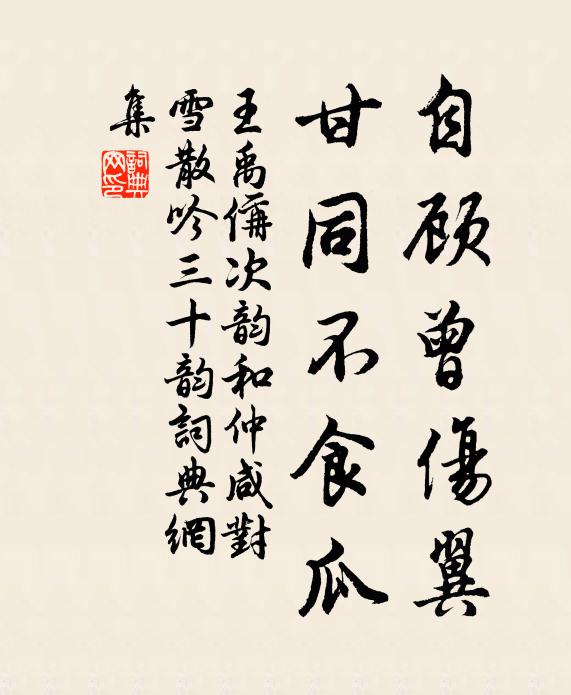 自顾曾傷翼
甘同不食瓜
王禹偁次韵和仲咸對
雪散吟三十韵詞典網
集
詞典網印